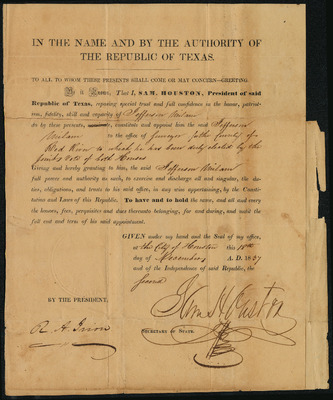 IN THE NAME AND BY THE AUTHORITY OF
THE REPUBLIC OF TEXAS.
TO ALL TO WHOM THESE PRESENTS SHALL COME OR MAY CONCERN—GREETING:
Be it Known, That I, SAM. HOUSTON, President of said
Republic of Texas, reposing special trust and full confidence in the honor, patriot-
ism, fidelity, and capacity of Jefferson Milam
do by these presents, constitute and appoint him the said Jefferson
Milam to the office of Surveyor for the County of
Red River to which he has been duly elected by the
joint Vote of both Houses
Giving and hereby granting to him, the said Jefferson Milam
full power and authority as such, to execute and discharge all and singular, the du-
ties, obligations, and trusts to his said office, in any wise appertaining, by the Consti-
tution and Laws of this Republic. To have and to hold the same, and all and every
the honors, fees, perquisites and dues thereunto belonging, for and during, and until the
full end and term of his said appointment.
GIVEN under my hand and the Seal of my office,
at the City of Houston this 18th
day of December A. D. 1837
and of the Independence of said Republic, the
Second
Sam Houston
BY THE PRESIDENT.
R. A. Irion
SECRETARY OF STATE.